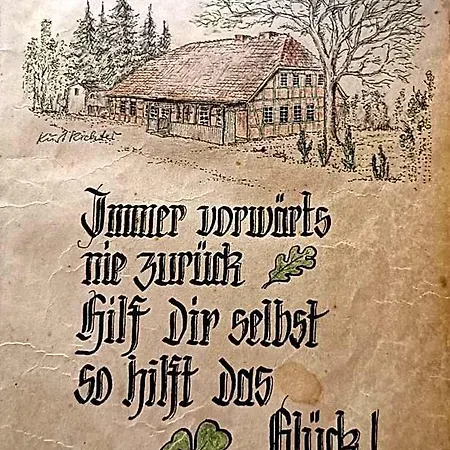 Kurt Richter
Immer vorwärts
nie zurück
Hilf Dir selbst
so hilft das
Glück!